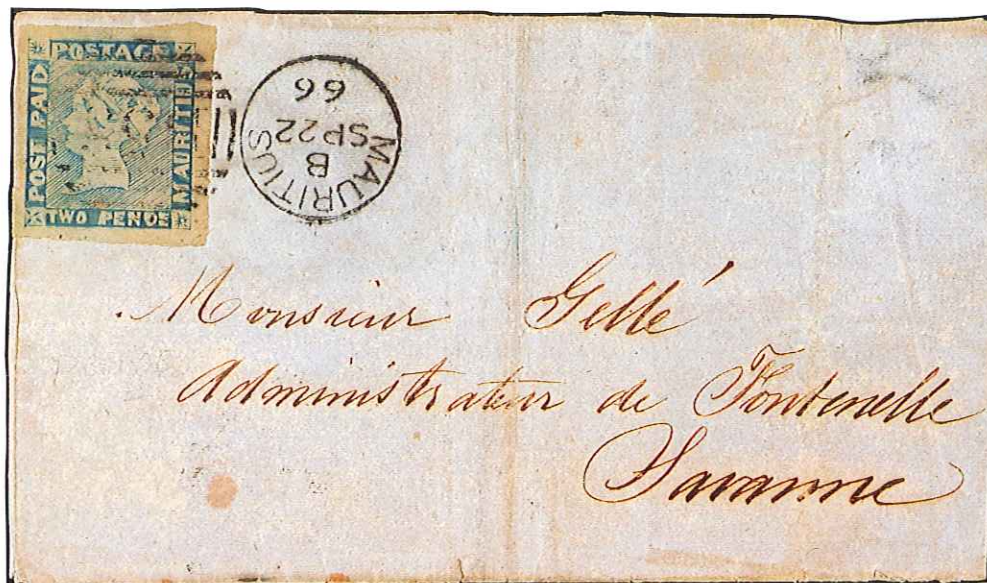 POSTAGE
POST PAID
MAURITIUS
TWO PENCE
MAURITIUS
B
SP 22
66
Monsieur Gellé
Administrateur de Fontenelle
Savanne